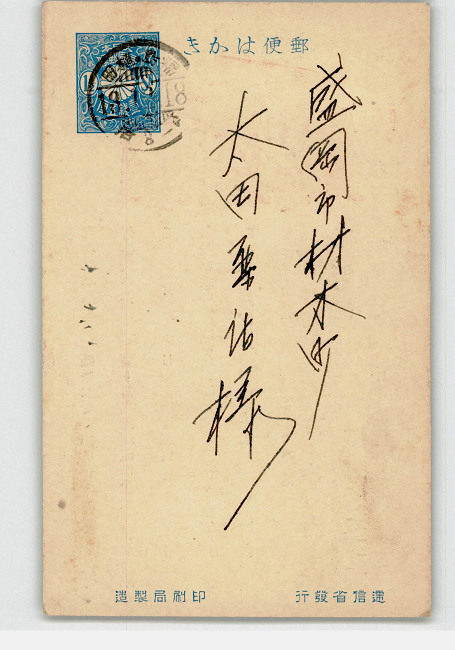 郵便はかき
盛岡市材木町
太田
様
遞信省發行
印刷局製造